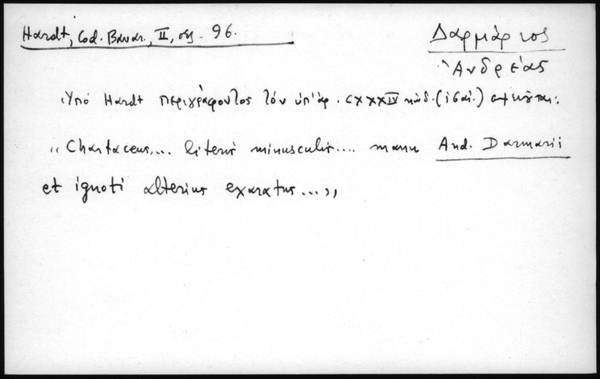 Hardt, Cod. Bavar., II, σελ. 96.
Δαρμάριος
Ἀνδρέας
Ὑπὸ Hardt περιγράφοντος τὸν ὑπ' ἀρ. CXXXIV κώδ. (ἰσαι.)
"Chartaceus,... literis minusculis.... manu And. Darmarii
et ignoti alterius exaratus...,,